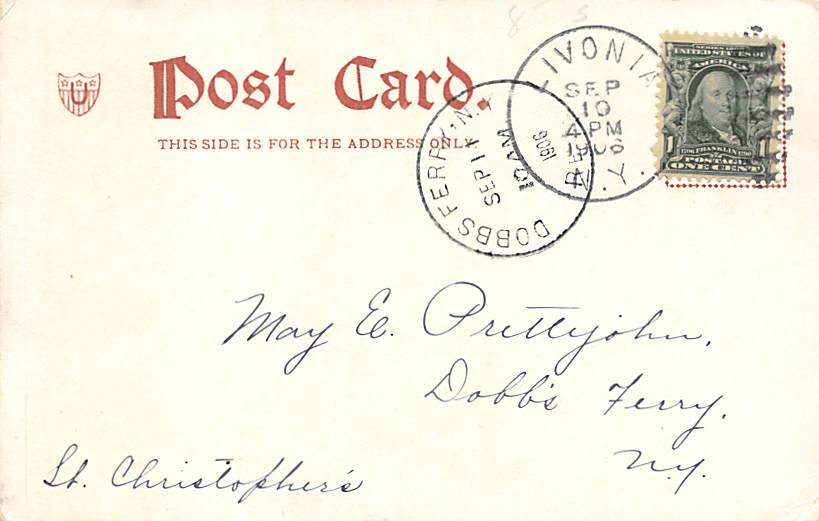 8 3
Post Card.
THIS SIDE IS FOR THE ADDRESS ONLY
U
LIVONIA
SEP
10
4 PM
1906
N.Y.
DOBBS FERRY, N.Y.
SEP 11
10 AM
1906
SERIES 1902
UNITED STATES OF
AMERICA
1706 FRANKLIN 1790
1 POSTAGE 1
ONE CENT
May E. Prettyjohn,
Dobb's Ferry.
N.Y.
St. Christopher's